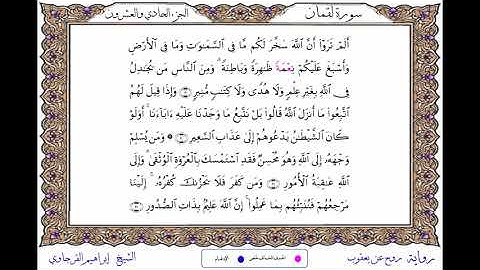 سورة لقمان
الجزء الحادي والعشرون
أَلَمْ تَرَوْا أَنَّ اللَّهَ سَخَّرَ لَكُم مَّا فِى السَّمَٰوَٰتِ وَمَا فِى الْأَرْضِ
وَأَسْبَغَ عَلَيْكُمْ نِعْمَةً ظَٰهِرَةً وَبَاطِنَةً ۗ وَمِنَ النَّاسِ مَن يُجَٰدِلُ
فِى اللَّهِ بِغَيْرِ عِلْمٍ وَلَا هُدًى وَلَا كِتَٰبٍ مُّنِيرٍ وَإِذَا قِيلَ لَهُمُ
اتَّبِعُوا مَا أَنزَلَ اللَّهُ قَالُوا بَلْ نَتَّبِعُ مَا وَجَدْنَا عَلَيْهِ ءَابَاءَنَا ۚ أَوَلَوْ
كَانَ الشَّيْطَٰنُ يَدْعُوهُمْ إِلَىٰ عَذَابِ السَّعِيرِ ۞ وَمَن يُسْلِمْ
وَجْهَهُ إِلَى اللَّهِ وَهُوَ مُحْسِنٌ فَقَدِ اسْتَمْسَكَ بِالْعُرْوَةِ الْوُثْقَىٰ ۗ وَإِلَى
اللَّهِ عَٰقِبَةُ الْأُمُورِ وَمَن كَفَرَ فَلَا يَحْزُنكَ كُفْرُهُ ۚ إِلَيْنَا
مَرْجِعُهُمْ فَنُنَبِّئُهُم بِمَا عَمِلُوا ۚ إِنَّ اللَّهَ عَلِيمٌ بِذَاتِ الصُّدُورِ
رواية روح عن يعقوب
الشيخ إبراهيم الفرجاوي